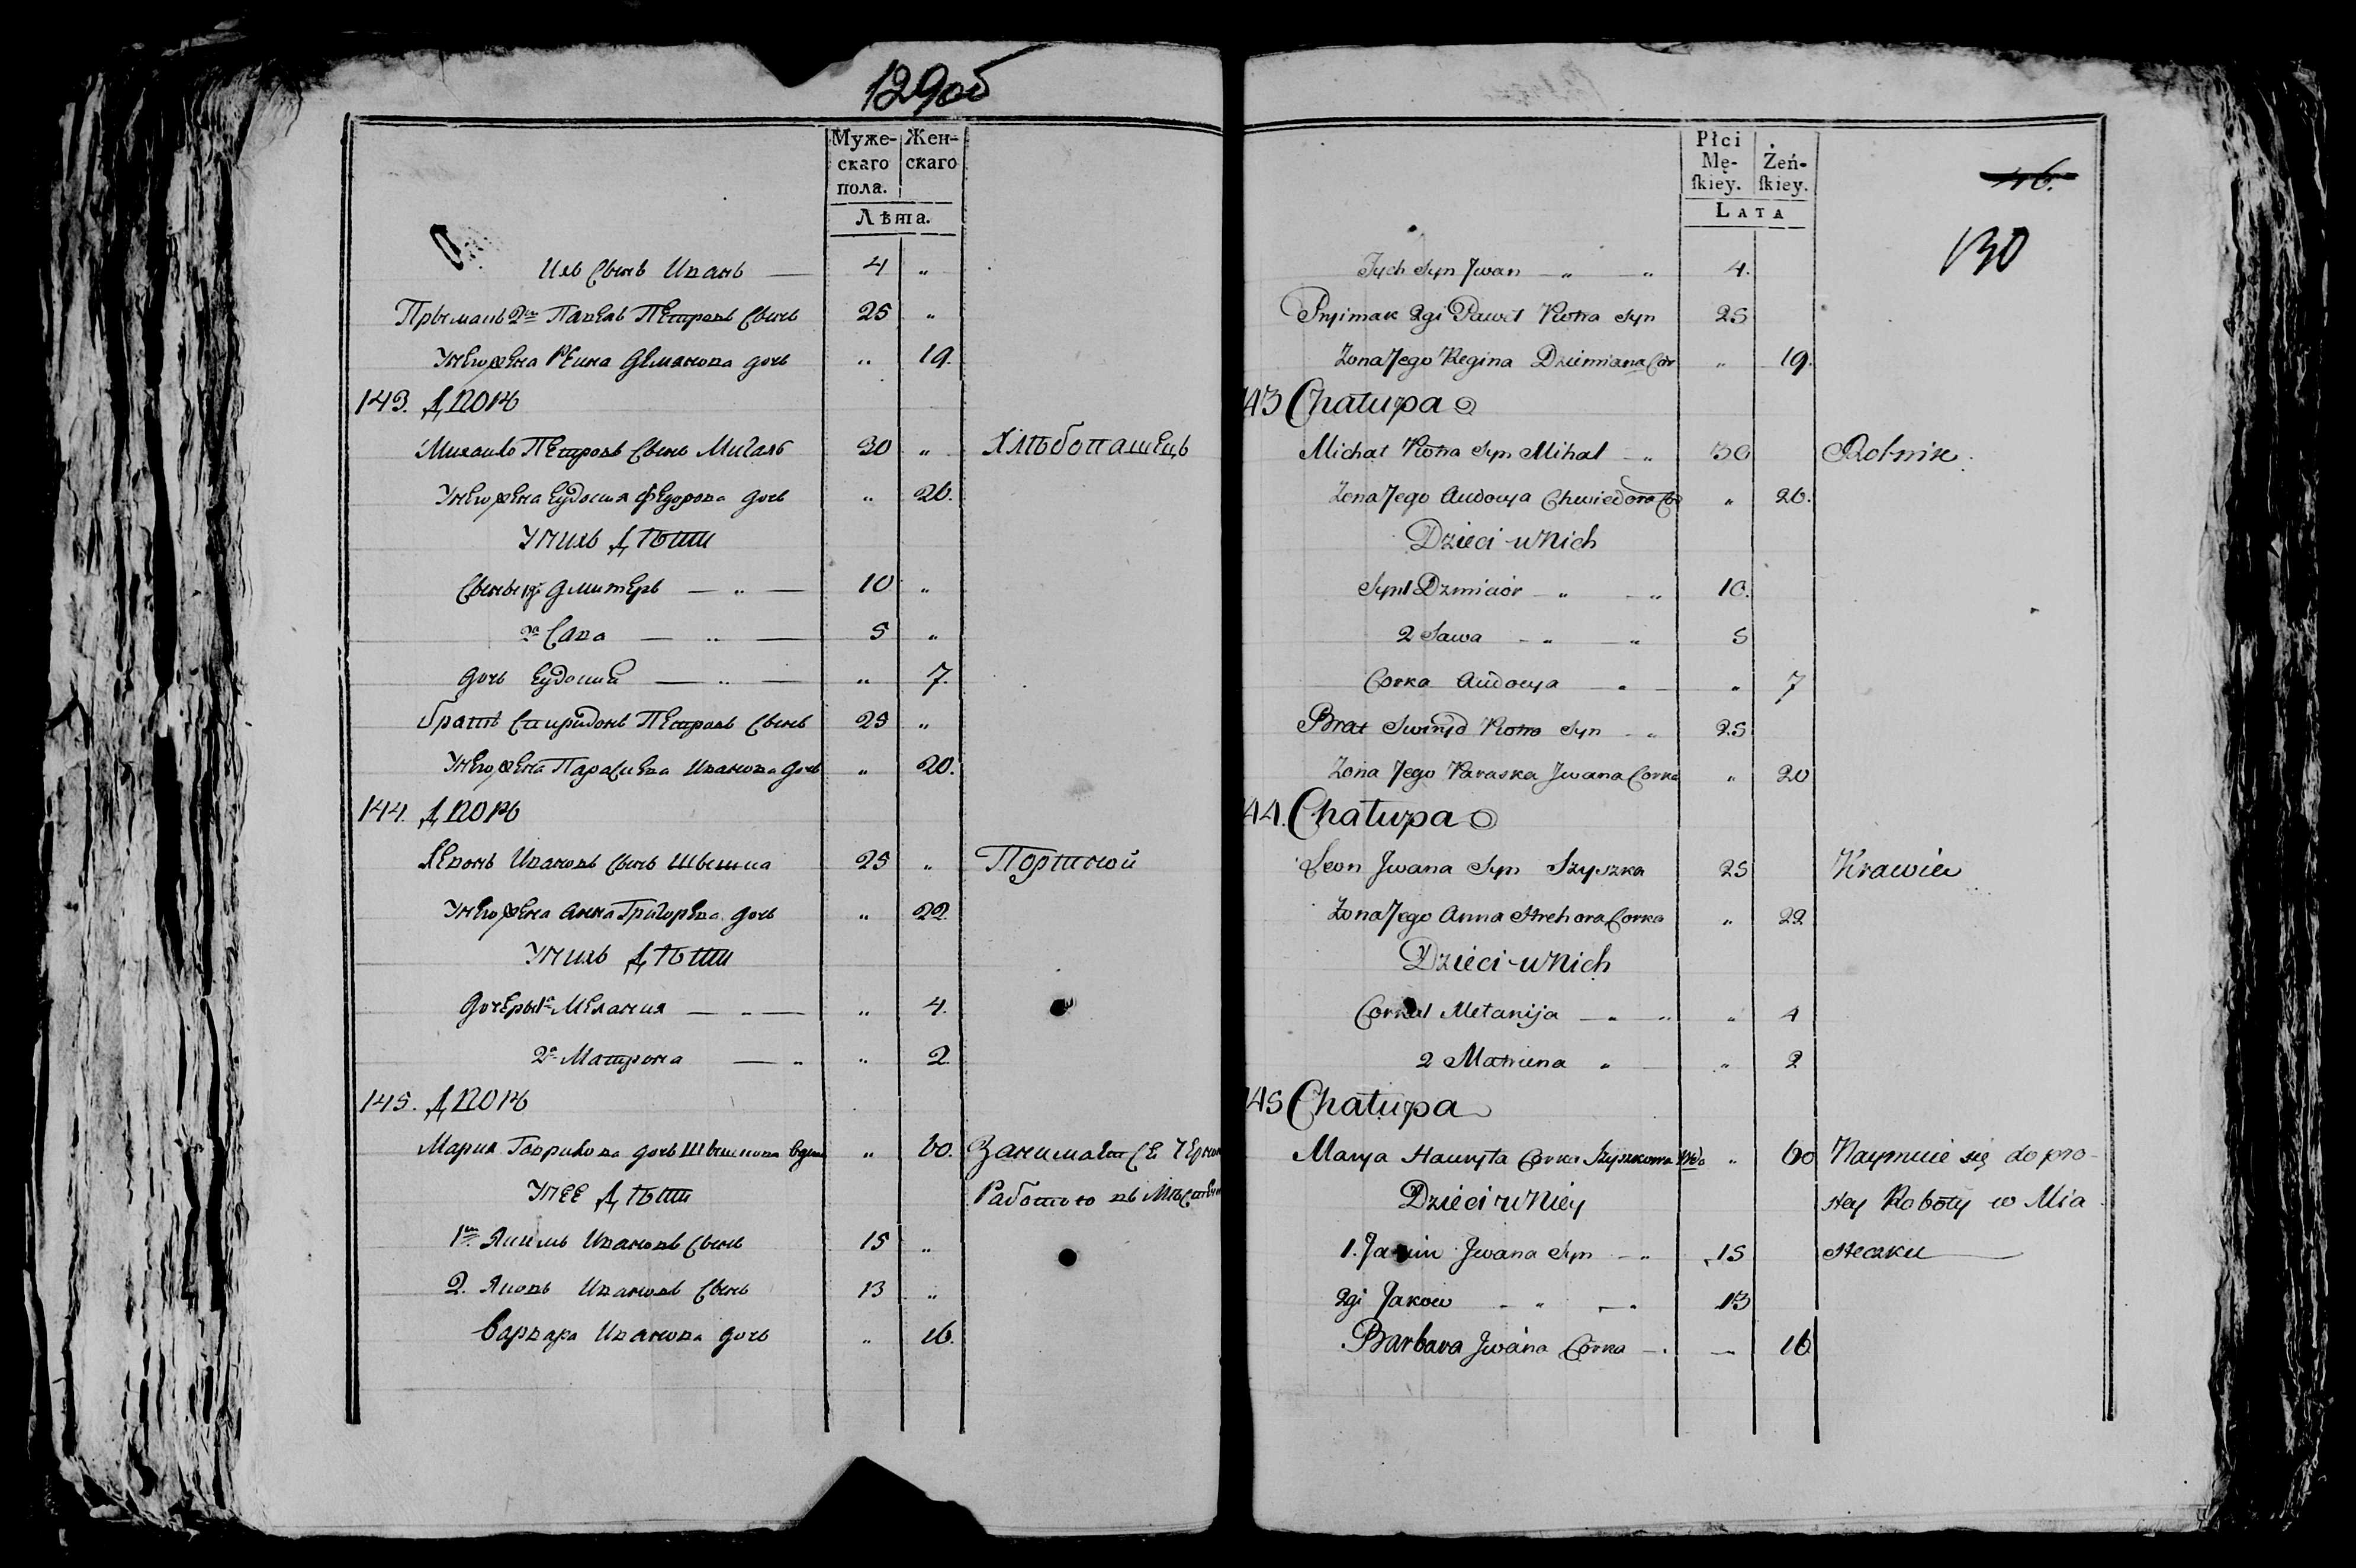 129об
Муже-
скаго
пола.
Жен-
скаго
Лѣта.
ихъ Сынъ Иванъ — 4 „
Прыманъ 2й Павелъ Петровъ Сынъ 25 „
У него жена Реина Демянова дочь „ 19.
143. Дворъ
Михаило Петровъ Сынъ Мигалъ 30 „ Хлѣбопашецъ
У него жена Еудосия Федорова дочь „ 26.
У нихъ Дѣти
Сыны 1й Дмитеръ — „ — 10 „
2й Сава — „ — 5 „
дочь Еудосия — „ — „ 7.
братъ Спиридонъ Петровъ Сынъ 25 „
У него жена Парасиева Иванова дочь „ 20.
144. Дворъ
Левонъ Ивановъ Сынъ Шышка 25 „ Портной
У него жена Анна Григорева дочь „ 22
У нихъ Дѣти
дочеры 1я Мелания — „ — „ 4.
2я Матрона — „ „ 2
145. Дворъ
Мария Гаврилова дочь Шышкова вдова „ 60. Занимаетсе Черною
У нее Дѣти Работою въ Мѣстечку
1й Якимъ Ивановъ Сынъ 15 „
2. Яковъ Ивановъ Сынъ 13 „
Варвара Иванова дочь „ 16.
Płci
Mę-
skiey.
Żeń-
skiey.
LATA
46.
130
Jych Syn Jwan — „ — „ 4.
Pryimak 2gi Paweł Piotra Syn 25
Zona Jego Regina Dziemiana Cór „ 19.
143 Chałupa
Michał Piotra Syn Mihal — „ 30 Rolnik
Zona Jego Audocya Chwiedora Cór „ 26.
Dzieci u Nich
Syn 1 Dzmiciór — „ — „ 10.
2 Sawa — „ — „ 5
Corka Audocya — „ — „ 7
Brat Swiryd Piotra Syn — „ 25
Zona Jego Paraska Jwana Corka „ 20
144. Chałupa
Leon Jwana Syn Szyszka 25 Krawiec
Zona Jego Anna Hrehora Corka „ 22
Dzieci u Nich
Corka 1 Mełanija — „ „ „ 4
2 Matruna „ — „ 2
145 Chałupa
Marya Hauryła Corka Szyszkowa Wdo „ 60 Naymuie się do pro-
Dzieci u Niéy stey Roboty w Mia
1. Jakim Jwana Syn — „ 15 steczku
2gi Jakow — „ — „ 13
Barbara Jwana Córka — . — 16